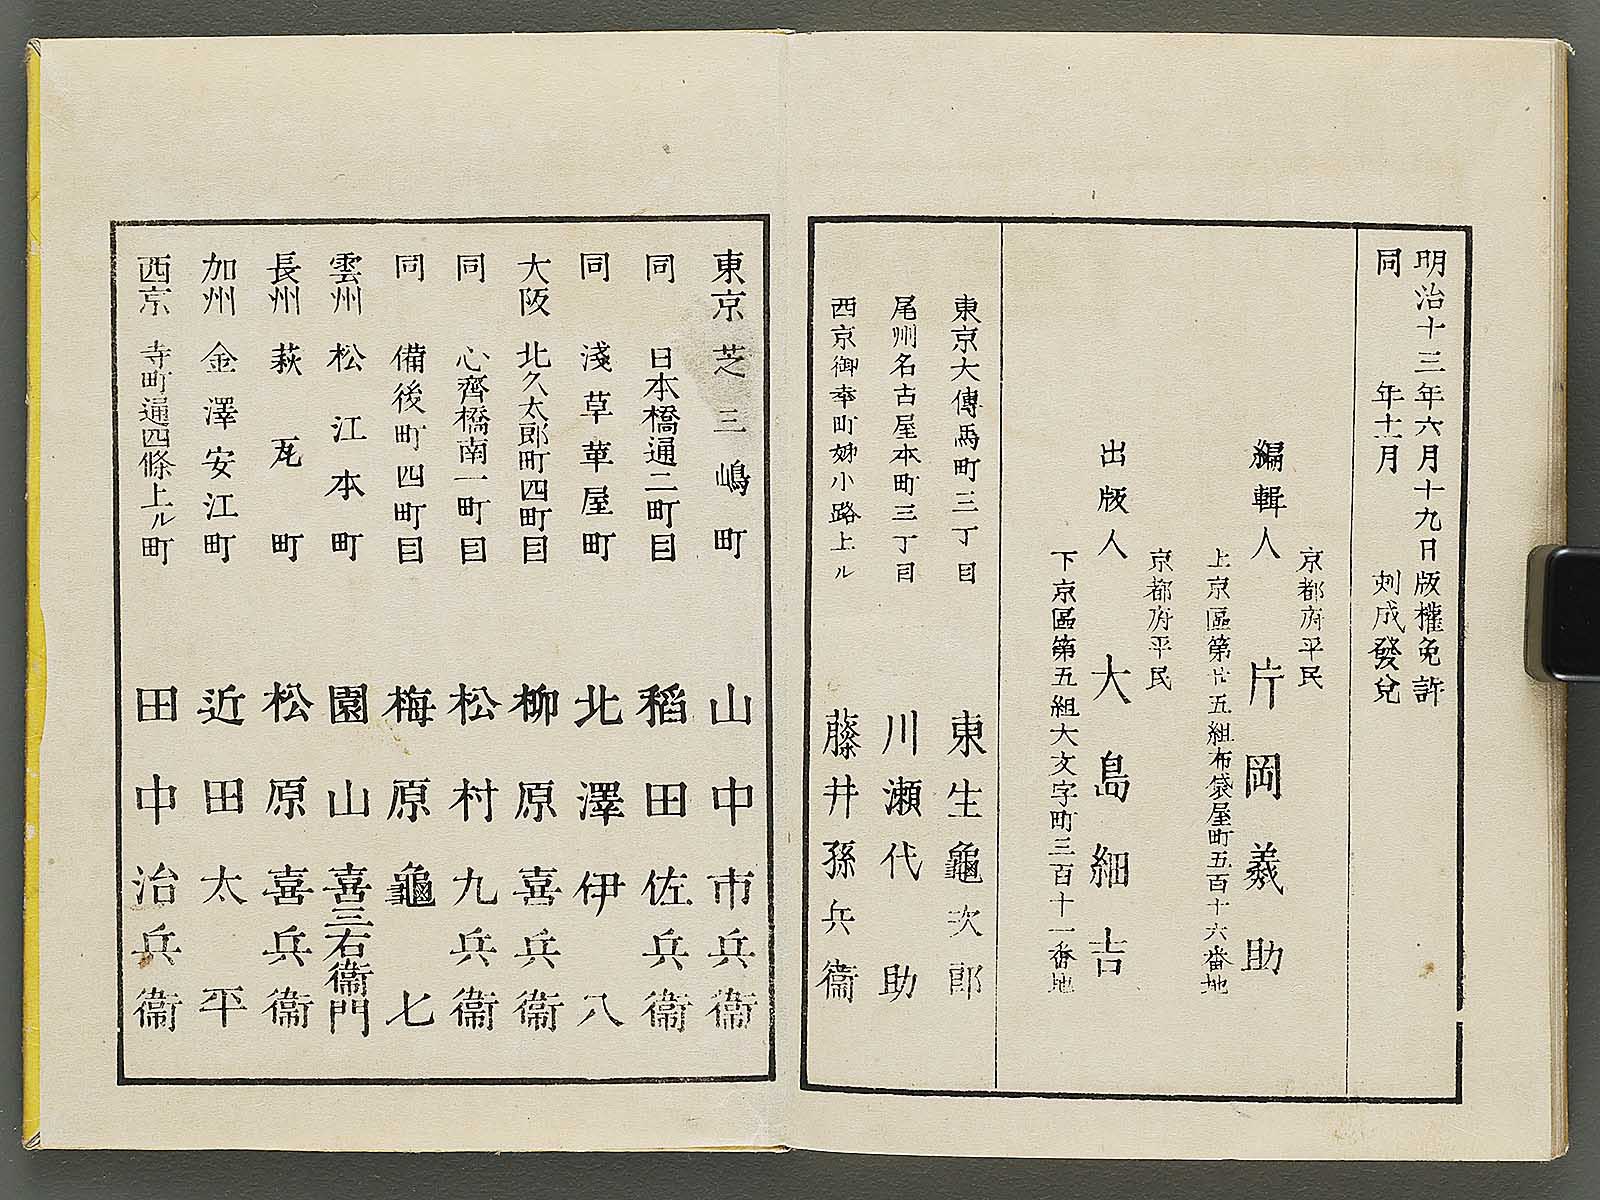 明治十三年六月十九日版權免許
同年十一月刻成發兌
京都府平民
編輯人 片岡義助
上京區第廿五組布袋屋町五百十六番地
京都府平民
出版人 大島細吉
下京區第五組大文字町三百十一番地
東京大傳馬町三丁目 東生龜次郎
尾州名古屋本町三丁目 川瀬代助
西京御幸町姊小路上ル 藤井孫兵衞
東京芝三嶋町 山中市兵衞
同 日本橋通二町目 稻田佐兵衞
同 淺草華屋町 北澤伊八
大阪 北久太郎町四町目 柳原喜兵衞
同 心齊橋南一町目 松村九兵衞
同 備後町四町目 梅原龜七
雲州 松江本町 園山喜三右衞門
長州 萩瓦町 松原喜兵衞
加州 金澤安江町 近田太平
西京 寺町通四條上ル町 田中治兵衞